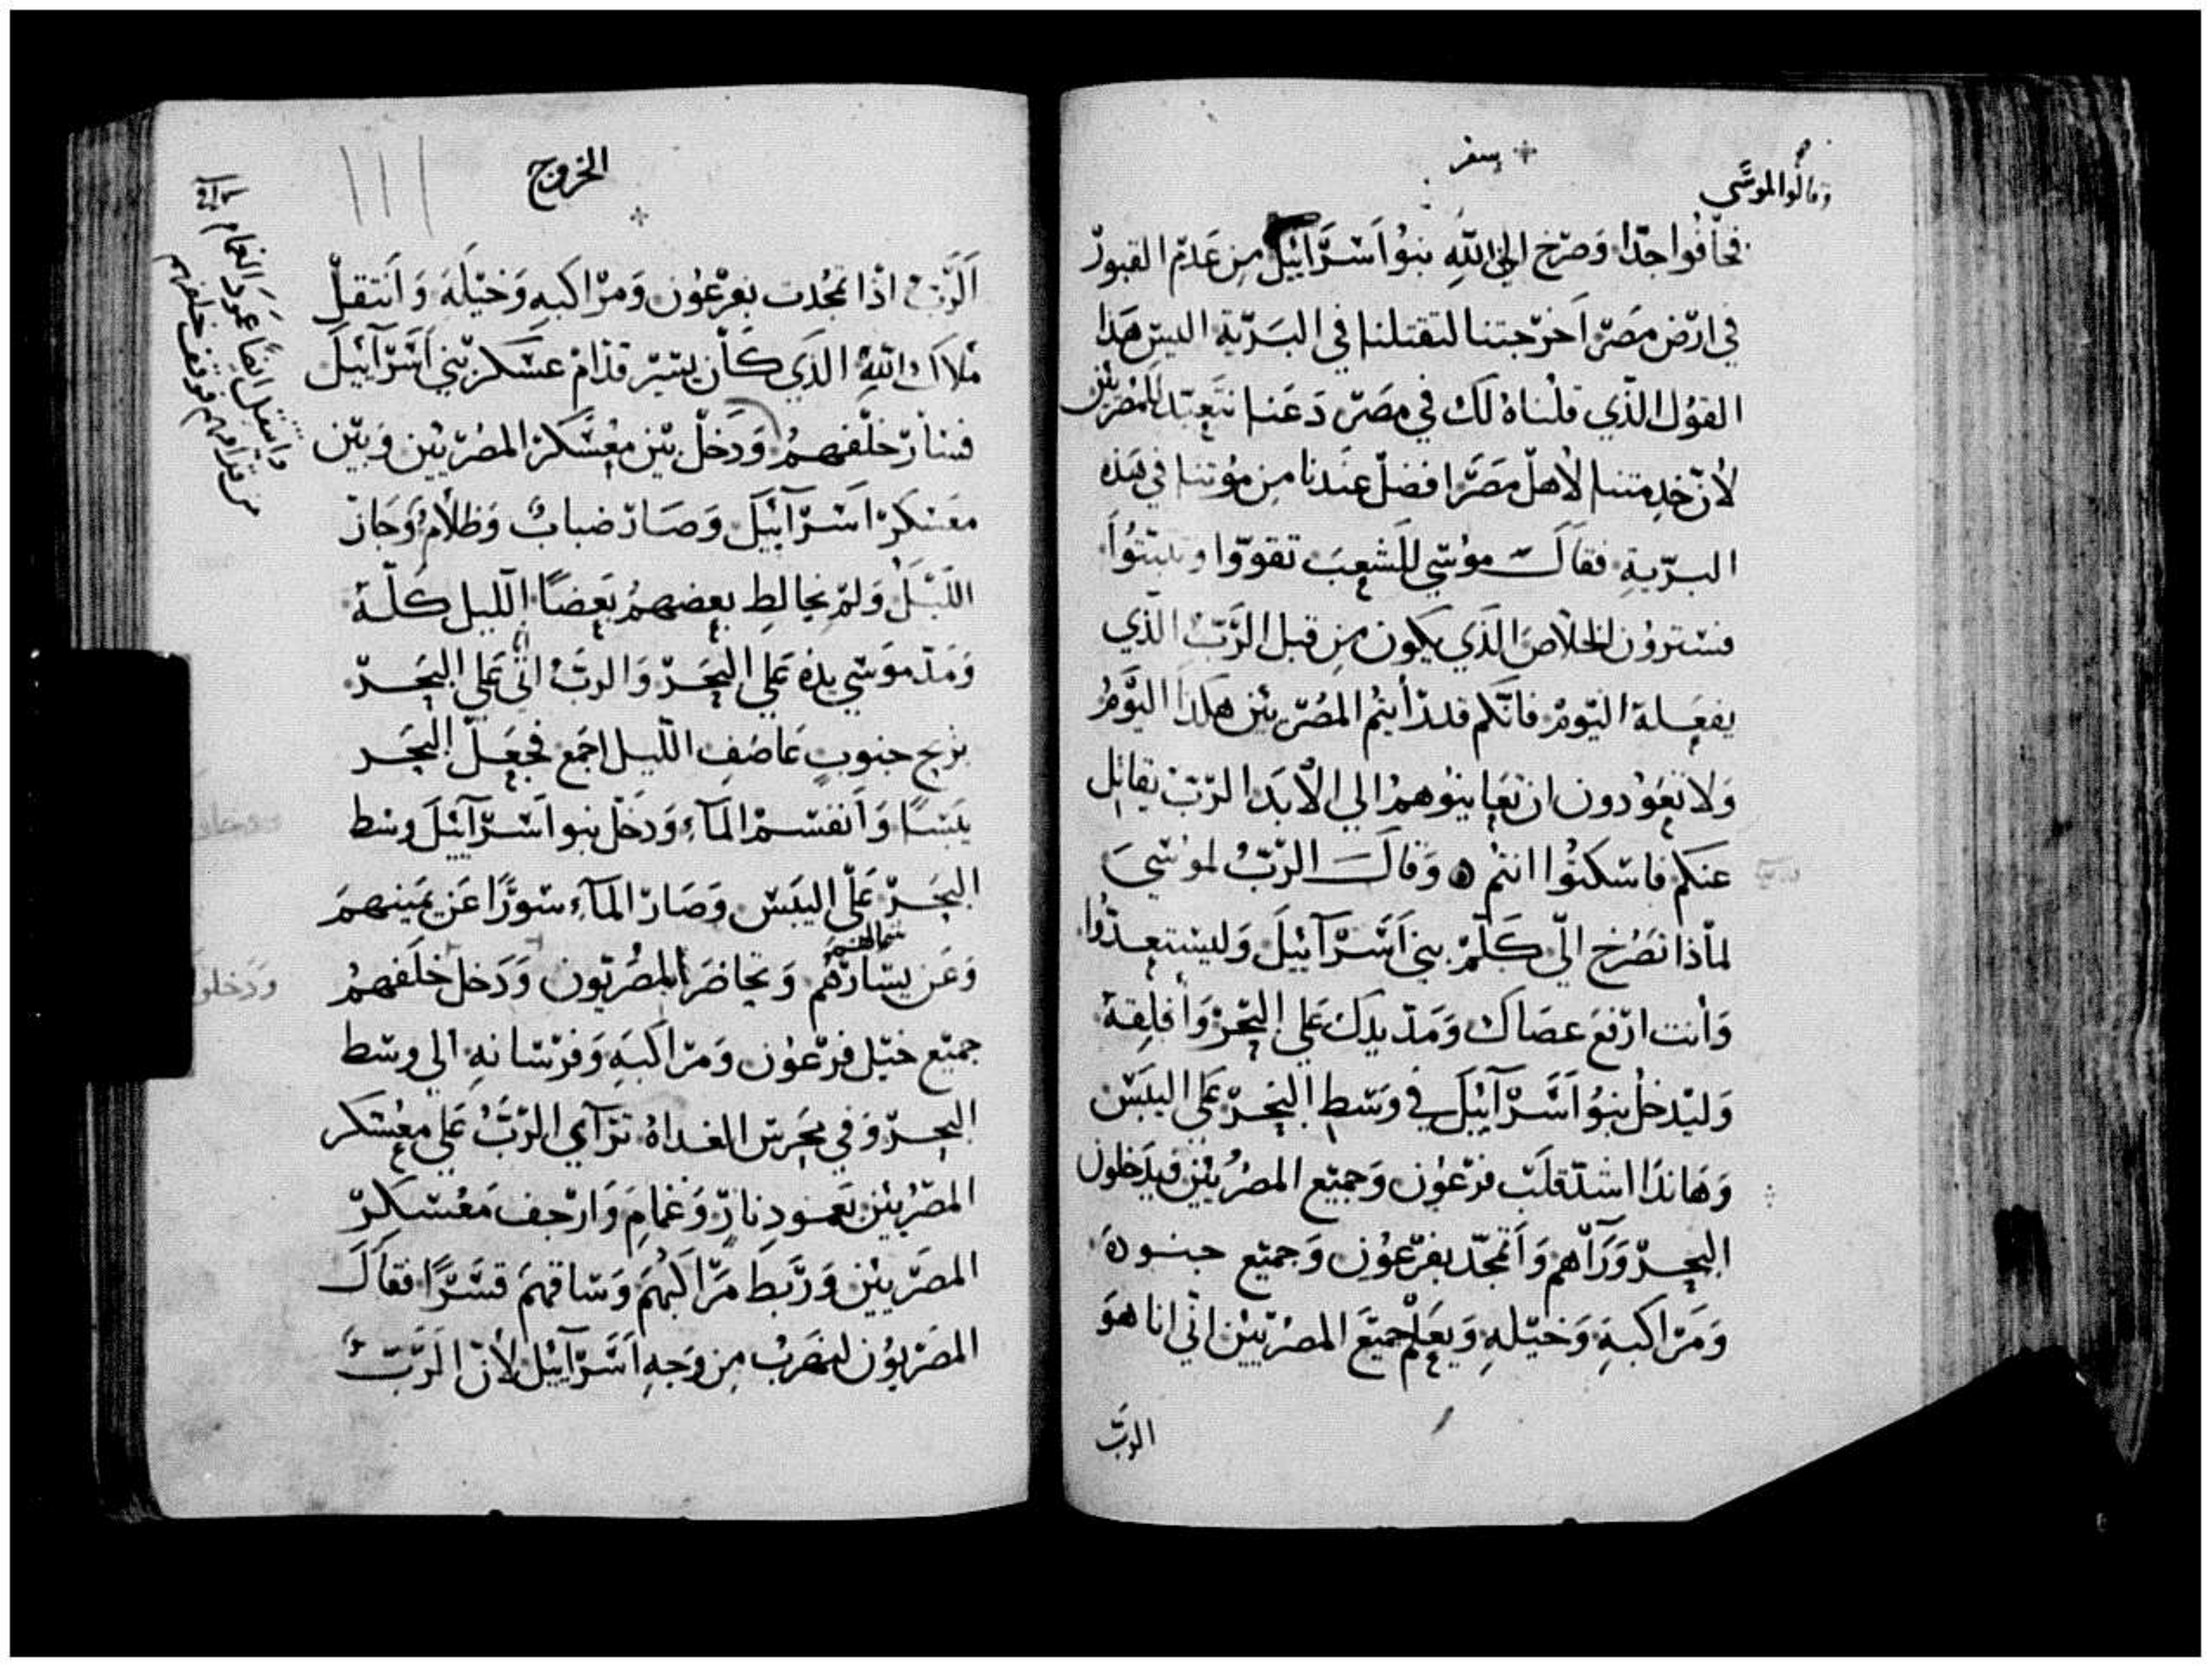 سفر
وقالوا لموسى
فخافوا جدّا وصرخ الي الله بنوا اسرائيل من عدم القبور
في ارض مصر اخرجتنا لتقتلنا في البرّية اليس هذا
القول الذي قلناه لك في مصر دعنا نتعبّد للمصريين
لأن خدمتنا لاهل مصر افضل عندنا من موتنا في هذه
البرّية فقال موسي للشعب تقووّا وتثبتوا
فسترون الخلاص الذي يكون من قبل الرّبّ الذي
يفعله اليوم فانّكم قد رأيتم المصريين هكذا اليوم
ولا تعودون ان تعاينوهم الي الأبد الرّبّ يقاتل
عنكم فاسكتوا انتم ه وقال الرّبّ لموسي
لماذا تصرخ اليّ كلّم بني اسرآئيل وليستعدّوا
وأنت ارفع عصاك ومدّ يدك علي البحر وأفلقه
وليدخل بنو اسرآئيل في وسط البحر علي اليبس
وهانذا اشدّ قلب فرعون وجميع المصريين فيدخلون
البحر ورآهم واتمجّد بفرعون وجميع جنوده
ومراكبه وخيله ويعلم جميع المصريين انّي انا هو
الربّ
الخروج
الرّبّ اذا تمجدت بفرعون ومراكبه وخيله وانتقل
ملاك الله الذي كان يسير قدّام عسكر بني اسرآئيل
فسار خلفهم ودخل بين معسكر المصريين وبين
معسكر اسرآئيل وصار ضباب وظلام وجاز
الليل ولم يخالط بعضهم بعضًا الليل كلّه
ومدّ موسي يده علي البحر والربّ اتي علي البحر
بريح جنوب عاصف اللّيل اجمع فجعل البحر
يبسًا وانقسم المآء ودخل بنو اسرآئيل وسط
البحر علي اليبس وصار المآء سورًا عن يمينهم
شمالهم
وعن يسارهم وتحاضر المصريون ودخل خلفهم
جميع خيل فرعون ومراكبه وفرسانه الي وسط
البحر وفي محرس الغداة ترآي الرّبّ علي معسكر
المصريين بعمود نار وغمام وارجف معسكر
المصريين وربط مراكبهم وساقهم قسرًا فقال
المصريون لنهرب من وجه اسرآئيل لأنّ الرّبّ
وانتقل ايضًا عمود الغمام
من قدامهم فوقف خلفهم
ودخلو